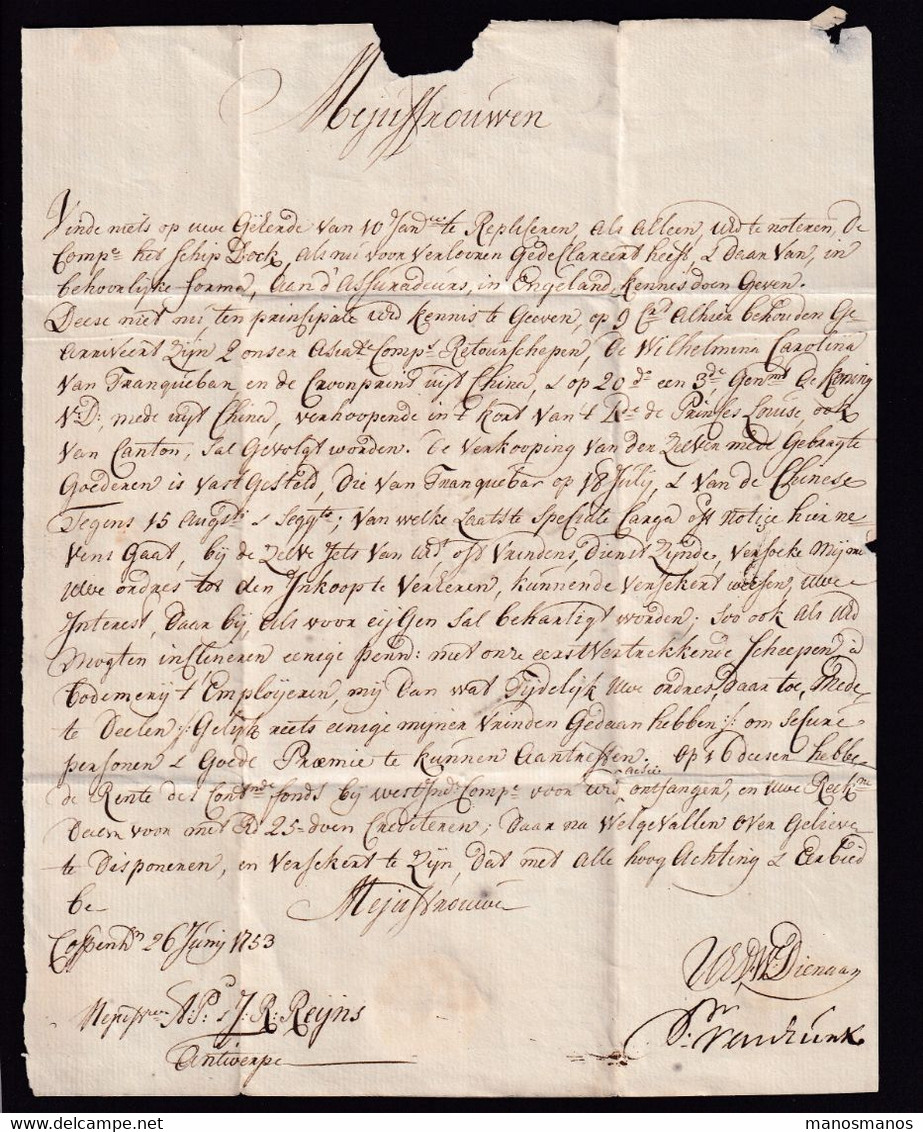 Mejuffrouwen
Vinde niets op uwe Geëerde van 10 Janu: te Repliseren, als alleen ued te noteren, de
Compe het schip Dock, als nu voor verlooren Gedeclareert heeft, & Daar van, in
behoorlijke forma, aen d'Assuradeurs, in Engeland, kennis doen Geven.
Deese niet min ten principale ued kennis te Geeven, op 9 Alhier behouden Ge
arriveert Zijn 2 onser Asiat:e Comp:s Retourschepen, de Wilhelmina Carolina
Van Tranquebar en de Croonprins uijt China, & op 20 de een 3de Genmt de Koning
V: D: mede uijt China, verhoopende in 't kort van 't de Prinses Louise ook
Van Canton, sal gevolgt worden. De verkooping van der zelver mede Gebragte
Goederen is vast Gesteld, die van Tranquebar op 18 Julij, & van de Chinese
Tegens 15 Aug:ti & ; van welke Laatste specialle Carga off Notize hier ne
vens Gaat, bij de zelve Iets van Ued off Vrindens, Dienst Zijnde, versoeke Mij
uwe ordres tot den Inkoop te Verleren, kunnende versekert weesen, uwe
Interest, Daar bij, als voor eijgen sal behartigt worden; soo ook als Ued
Mogten inclineren eenige penn: met onze eerst Vertrekkende scheepen, à
bodemerij t'Employeren, mij Dan wat Tijdelijk uwe ordres, Daar toe, Mede
te Deelen /: Gelijk reets eenige mijner Vrinden Gedaan hebben :/ om secure
personen & Goede Præmie te kunnen Aantreffen. op 16 deeser hebbe
de Rente des Cont:nde fonds bij West Ind: Compe voor ued actie ontfangen, en uwe Reek:
Daarvoor met Rd 25 - doen Crediteren; Daar na Welgevallen over Gelieve
te Disponeren, en versekert te Zijn, Dat met Alle hoog Achting & Eerbied
be
Mejuffrouwe
Coppenh: 26 Junij 1753
UEDW: Dienaar
Mejuffrwe A: P: & J: R: Reijns
Antwerpe
manosmanos